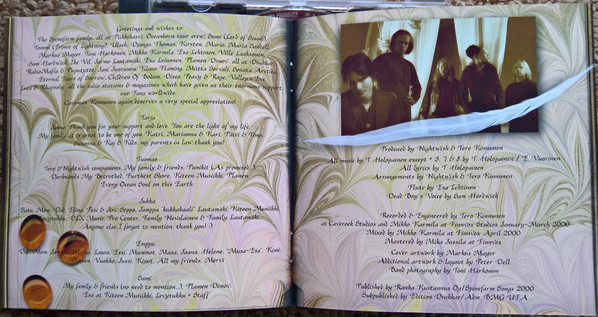 Greetings and wishes to
The Spinefarm family, all at Pikkikari, Oceanborn tour crew: Sumi (Lord of Sound),
Tommi (Prince of Lightning), Ulrich, Django, Thomas, Kirsten, Maria
Markus Mayer, Toni Härkönen, Mikko Karmila, Esa Lehtinen, Ville Laaksonen,
Sam Hardwick, The Vil, Jarmo Lautamäki, Esa Leinonen, Plamen Dimov, all at Drakkar
Eternal Tears of Sorrow, Children Of Bodom, Virgo
Luca & Rhapsody, all the radio stations & magazines which have given us their enormous support,
our fans worldwide.
Caverman Kinnunen again deserves a very special appreciation!
Tarja
Jussi, thank you for your support and love. You are the light of my life.
My family, it is great to be one of you. Katri, Marianna & Kari, Päivi & Timo,
& Kaj & Kids, my parents in law, thank you!
Tuomas
Tero & Nightwish companions, My family & friends, Funikit (As promised),
My Betrothed, Furthest Shore, Kiteen Musiikki, Plamen
Every Ocean Soul on this Earth
Jukka
Satu, Mom, Dad, Tiina, Pasi & Jori, Seppo, Kiteen Musiikki,
Music Pro Center, Family Nevalainen & Family Lautamäki.
Anyone else I forgot to mention, thank you! :)
Emppu
Laura, Essi, Mummot, Masa, Jaana, Helena, "Musa-Esa", Kimi,
Vuokko, Jussi, All my friends, Mervi
Sami
My family & friends (no need to mention...), Plamen Dimov,
Esa at Kiteen Musiikki, Levytukku + Staff
Produced by Nightwish & Tero Kinnunen
All music by T. Holopainen except * 3, 7 & 8 by T. Holopainen / E. Vuorinen
All lyrics by T. Holopainen
Arrangements by Nightwish & Tero Kinnunen
Flute by Esa Lehtinen
"Dead Boy's" Voice by Sam Hardwick
Recorded & Engineered by Tero Kinnunen
at Caverock Studios and Mikko Karmila at Finnvox Studios January-March 2000
Mixed by Mikko Karmila at Finnvox April 2000
Mastered by Mika Jussila at Finnvox
Cover artwork by Markus Mayer
Additional artwork & Layout by Peter Dell
Band photography by Toni Härkönen
Published by Ranka Kustannus Oy/Spinefarm Songs 2000
Subpublished by Edition Drakkar/Adm. BMG UFA